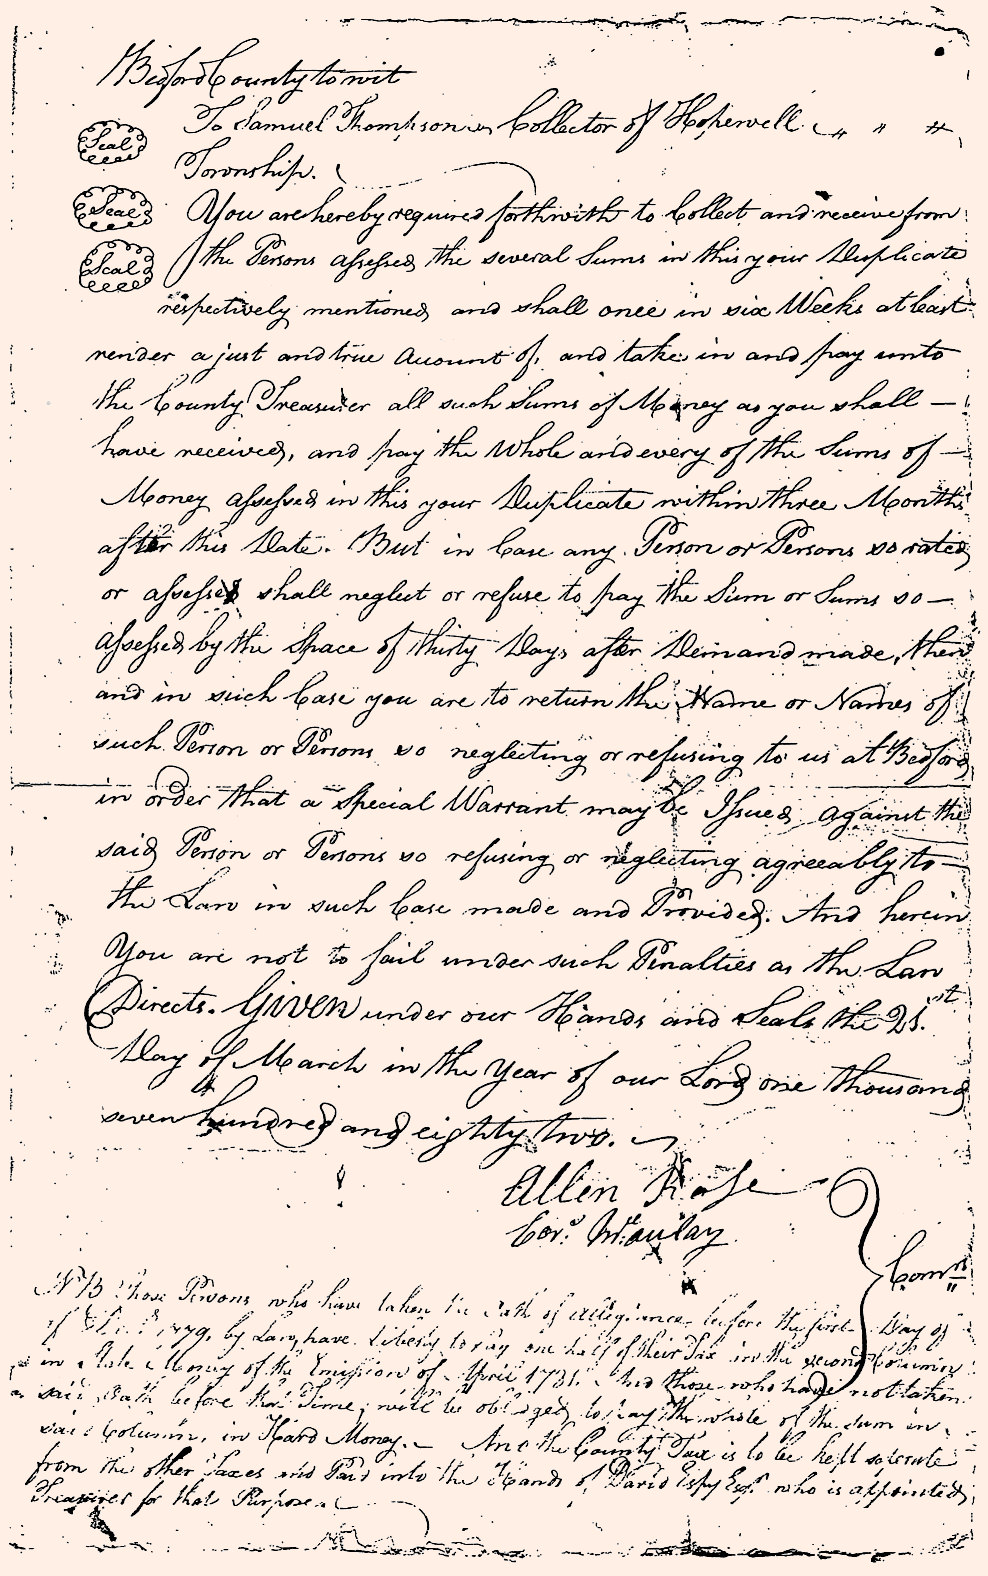 Bedford County to wit
To Samuel Thompson Collector of Hopewell
Seal
Township.
Seal
You are hereby required forthwith to Collect and receive from
Seal
the Persons assessed the several Sums in this your Duplicate
respectively mentioned and shall once in six Weeks at least
render a just and true Account of, and take in and pay unto
the County Treasurer all such Sums of Money as you shall —
have received, and pay the Whole and every of the Sums of —
Money assessed in this your Duplicate within three Months
after this Date. But in Case any Person or Persons so rated
or assessed shall neglect or refuse to pay the Sum or Sums so —
Assessed by the Space of thirty Days after Demand made, then
and in such Case you are to return the Name or Names of
such Person or Persons so neglecting or refusing to us at Bedford
in order that a Special Warrant may be Issued against the
said Person or Persons so refusing or neglecting agreeably to —
the Law in such Case made and Provided. And herein
You are not to fail under such Penalties as the Law
Directs. Given under our Hands and Seals the 21.st
Day of March in the Year of our Lord one thousand
seven hundred and eighty two.
Allen Rose
Cor.s McAulay
Comrs
NB Those Persons who have taken the Oath of Allegiance before the first Day of
1779, by Law, have Liberty to pay one half of their Tax in the second Column
in State Money of the Emission of April 1781. And those who have not taken
said Oath before that Time, will be obliged to pay the whole of the Sum in
said Column, in Hard Money. — And the County Tax is to be kept separate
from the other Taxes and Paid into the Hands of David Espy Esqr. who is appointed
Treasurer for that Purpose.